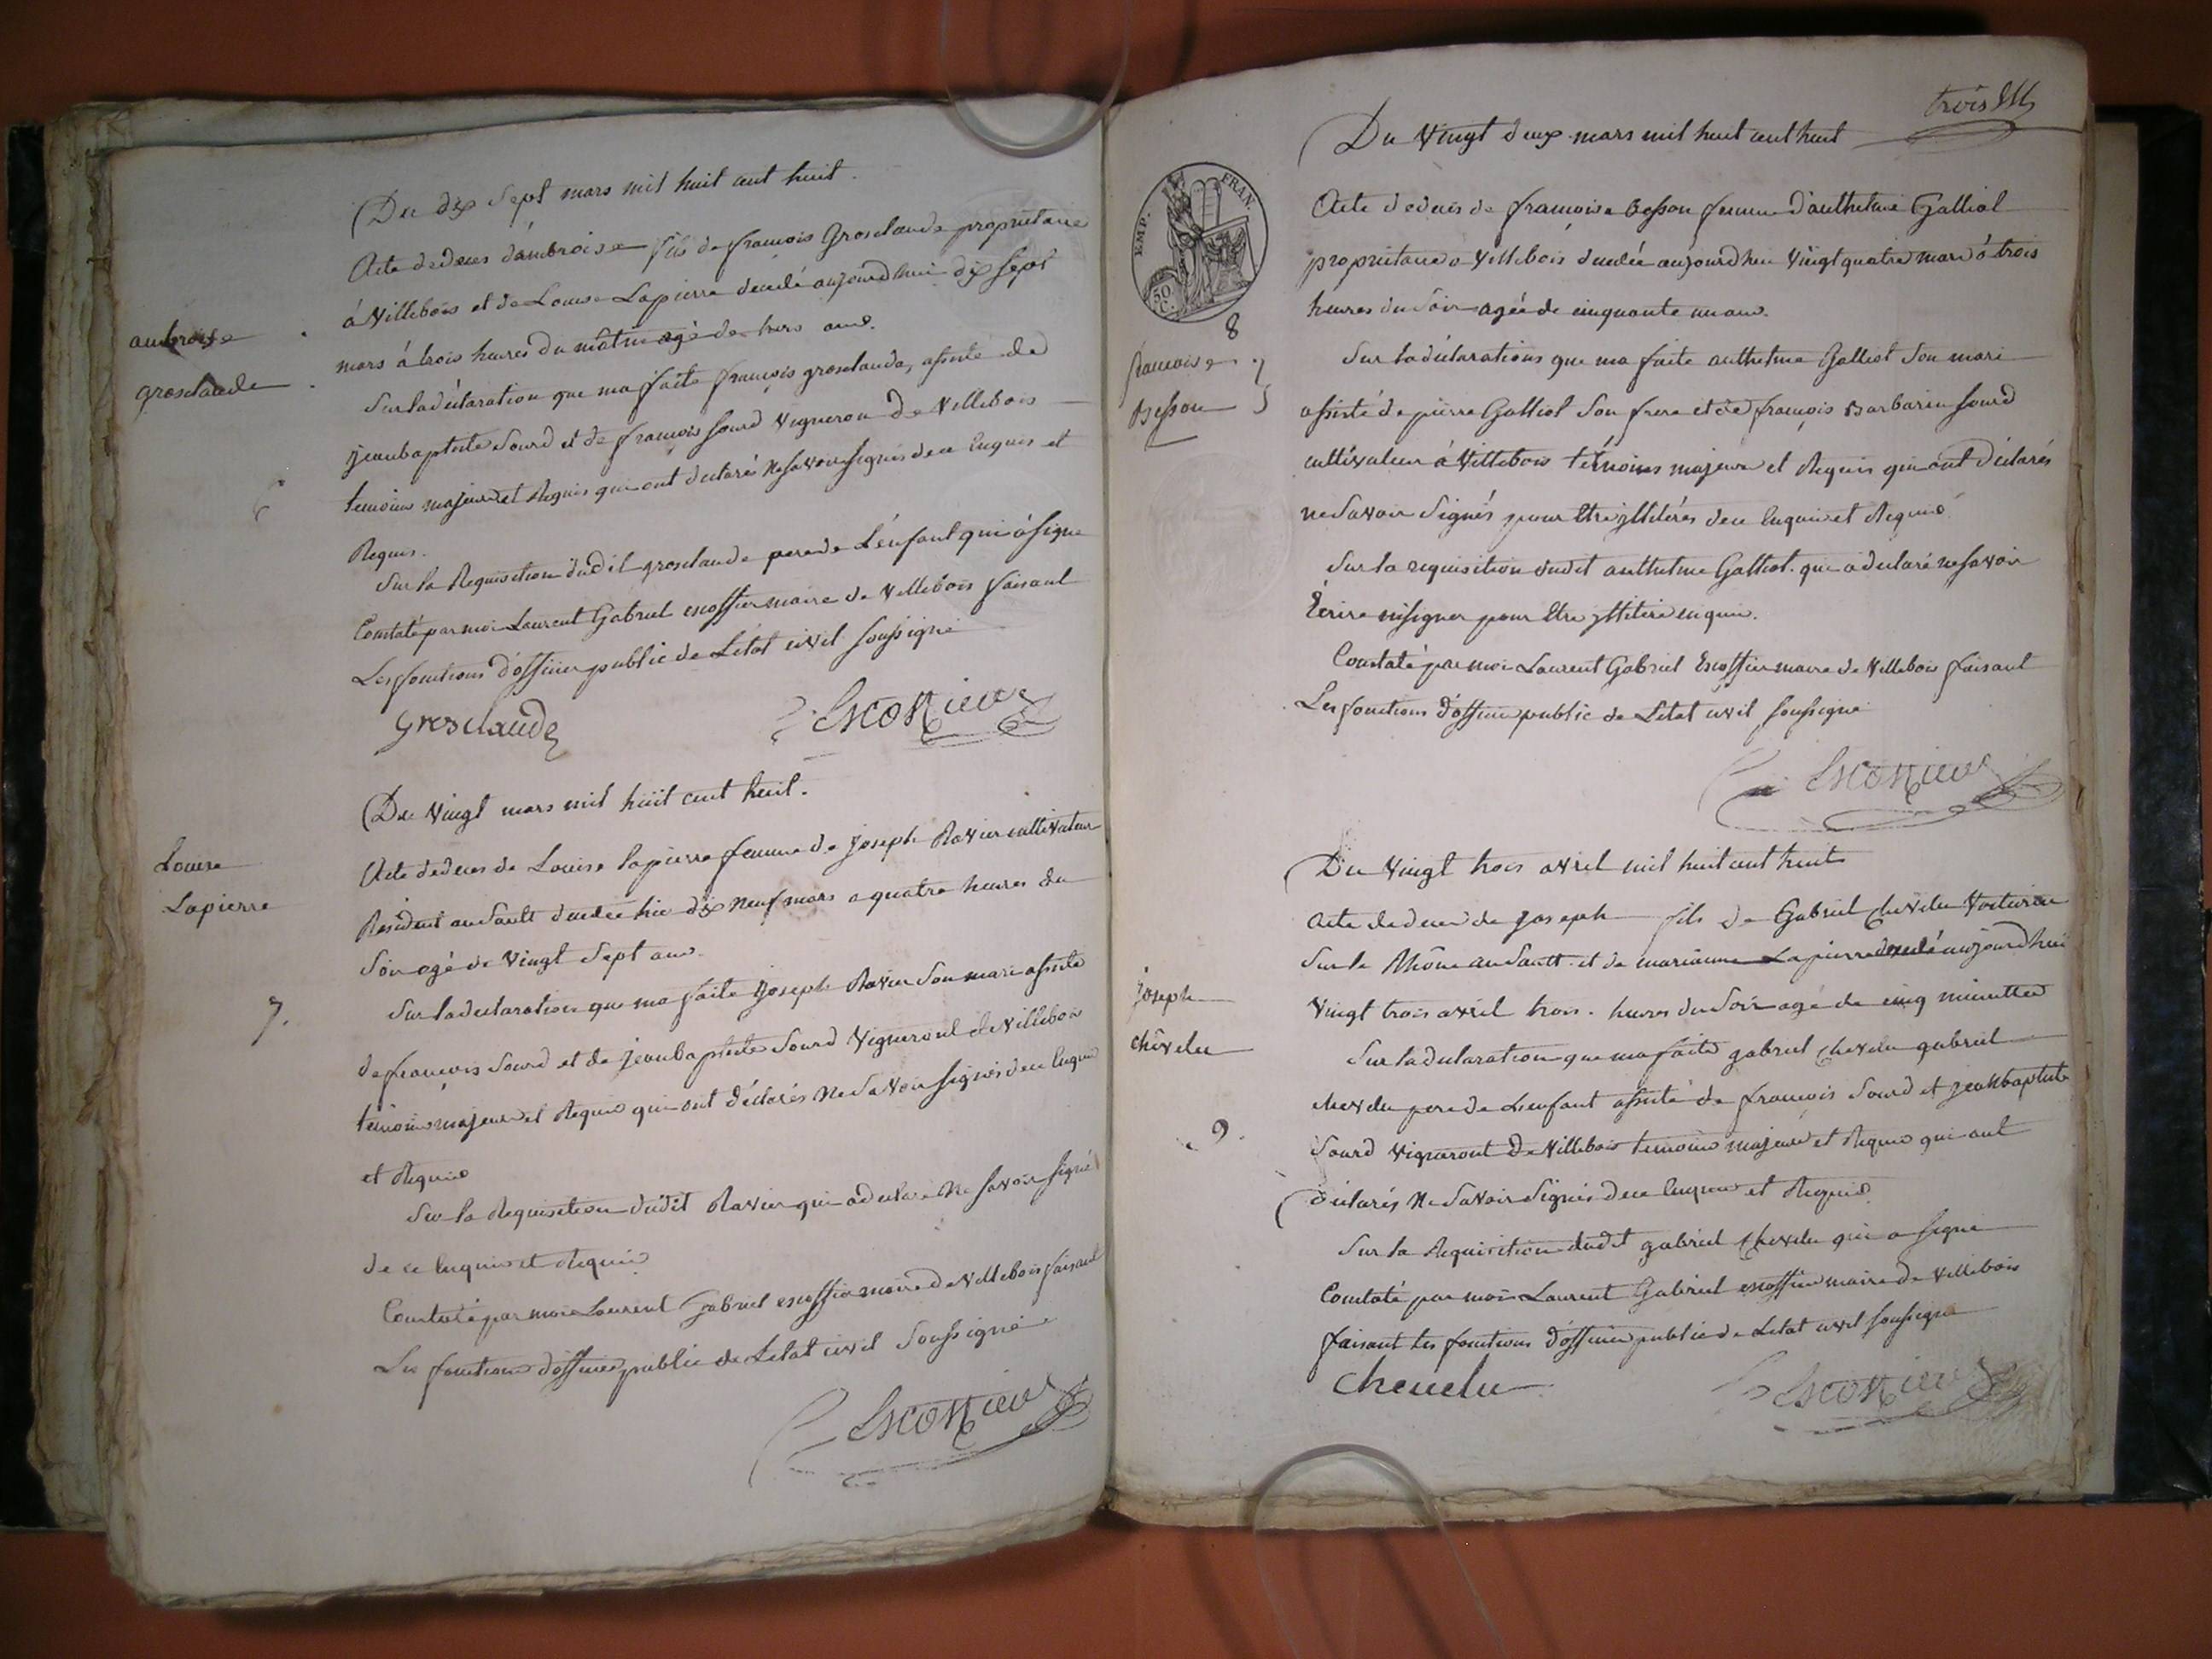 Du dix Sept mars mil huit cent huit.
Acte de deces d'ambroise fils de françois Grosclaude proprietaire
à Villebois et de Louise Lapierre decedé aujourd'hui dix Sept
mars à trois heures du matin agé de trois ans.
ambroise
grosclaude
Sur la déclaration que ma faite françois grosclaude, assisté de
jean baptiste Sourd et de françois Sourd Vigneron de Villebois
temoins majeurs et Requis qui ont declarés ne savoir signés de ce enquis et
Requis.
6
Sur la Requisition dudit grosclaude pere de L'enfant qui à signé
Constaté par moi Laurent Gabriel escoffier maire de Villebois faisant
Les fonctions d'officier public de L'état civil soussigné
Grosclaude Escoffier
Du Vingt mars mil huit cent huit.
Louise
Lapierre
Acte de deces de Louise lapierre femme de joseph Ravier cultivateur
Résident au Sault decedée hier dix neuf mars a quatre heures du
Soir agé de Vingt Sept ans.
7.
Sur la declaration que ma faite joseph Ravier Son mari assisté
de françois Sourd et de jean baptiste Sourd Vigneront de Villebois
témoins majeurs et Requis qui ont déclarés Ne Savoir signés de ce enquis
et Requis
Sur la Requisition dudit Ravier qui a declaré Ne savoir signé
de ce enquis et Requis
Constaté par moi Laurent Gabriel escoffier maire de Villebois faisant
Les fonctions d'officier public de L'etat civil Soussigné
Escoffier
trois
Du Vingt deux mars mil huit cent huit
EMP. FRAN.
50 C.
8
françoise
Besson
Acte de deces de françoise Besson femme d'anthelme Galliot
proprietaire a Villebois decedée aujourd'hui Vingt quatre mars à trois
heures du Soir agée de cinquante un ans.
Sur la déclarations que ma faite anthelme Galliot Son mari
assisté de pierre Galliot Son frere et de françois Barbarin Sourd
cultivateur à Villebois témoins majeurs et Requis qui ont déclarés
ne Savoir Signés pour être illiterés de ce enquis et Requis
Sur la requisition dudit anthelme Galliot. qui a declaré ne savoir
Ecrire ni signer pour être illiteré enquis.
Constaté par moi Laurent Gabriel Escoffier maire de Villebois faisant
Les fonctions d'officier public de L'etat civil soussigné
Escoffier
Du Vingt trois avril mil huit cent huit
joseph
chevelu
9.
Acte de deces de joseph fils de Gabriel Chevelu Voiturier
Sur le Rhône au Sault. et de marianne Lapierre decedé aujourd'hui
Vingt trois avril trois. heures du Soir agé de cinq minuttes
Sur la declaration que ma faite gabriel chevelu gabriel
chevelu pere de L'enfant assisté de françois Sourd et jean baptiste
Sourd Vigneront de Villebois temoins majeurs et Requis qui ont
déclarés Ne Savoir Signés de ce enquis et Requis.
Sur la Requisition dudit gabriel chevelu qui a signé
Constaté par moi Laurent Gabriel escoffier maire de Villebois
faisant les fonctions d'officier public de L'etat civil soussigné
Cheuelu Escoffier